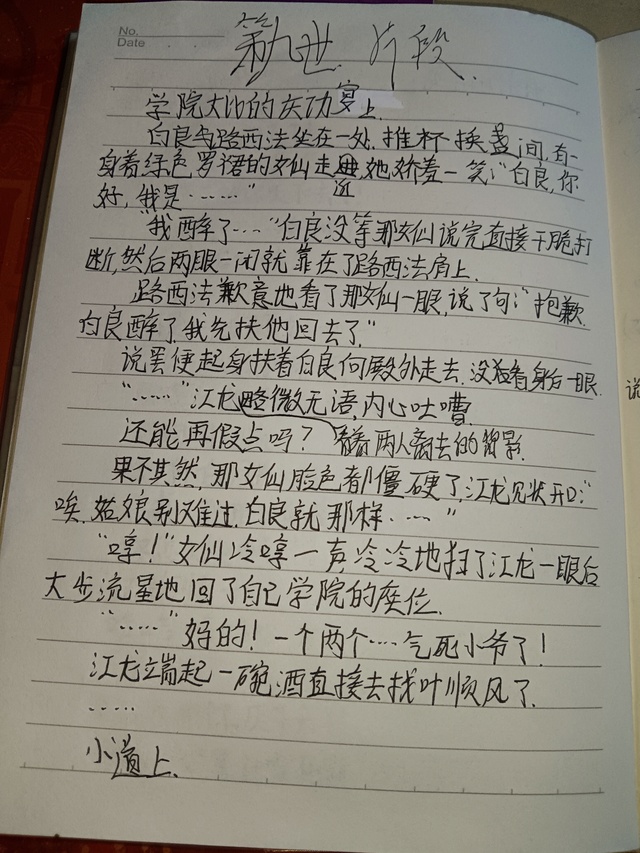 No.
Date
第九世 片段.
学院大比的庆功宴上.
白良与路西法坐在一处.推杯换盏间,有一
身着绿色罗裙的女仙走近,她娇羞一笑:"白良,你
好,我是……"
"我醉了…."白良没等那女仙说完直接干脆打
断,然后两眼一闭就靠在了路西法肩上.
路西法歉意地看了那女仙一眼,说了句:"抱歉.
白良醉了.我先扶他回去了."
说罢便起身扶着白良向殿外走去.没看身后一眼.
"……"江龙略微无语,内心吐嘈.
还能再假点吗?看着两人离去的背影.
果不其然,那女仙脸色都僵硬了,江龙见状开口:"
唉,姑娘别难过.白良就那样……"
"哼!"女仙冷哼一声冷冷地扫了江龙一眼后
大步流星地回了自己学院的座位.
"……"好的!一个两个….气死小爷了!
江龙端起一碗酒直接去找叶顺风了.
……
小道上.
说